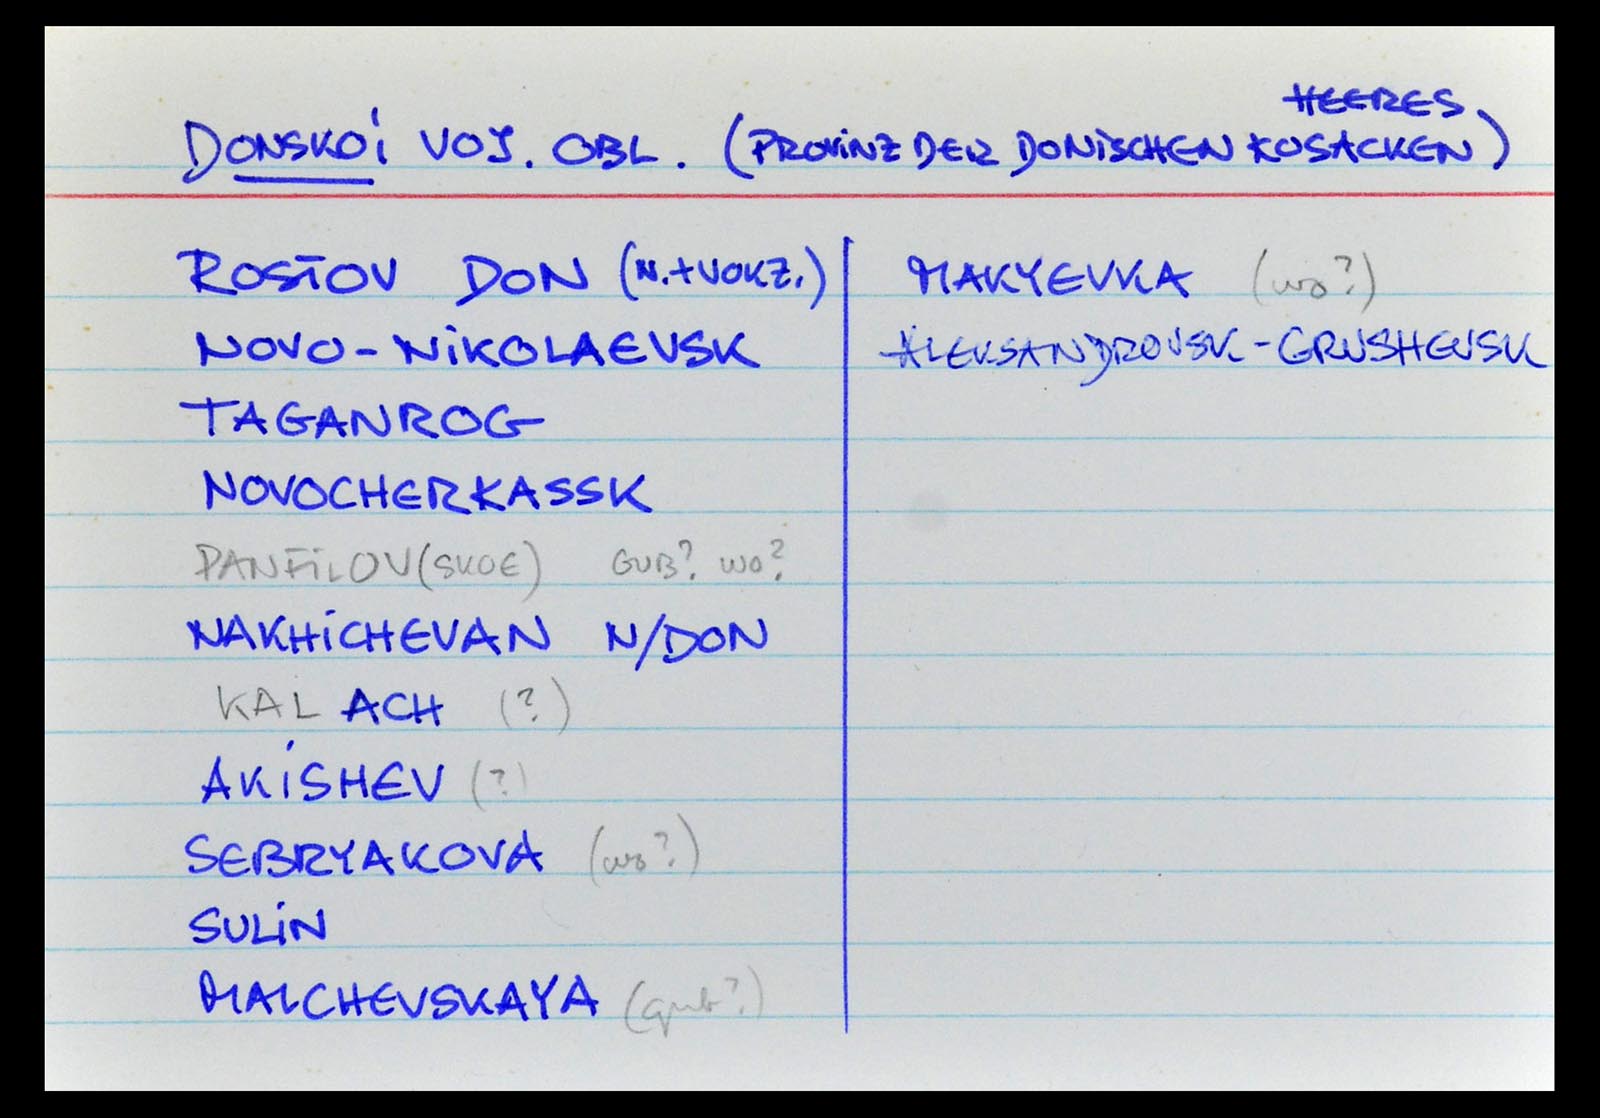 HEERES
DONSKOI VOJ. OBL. (PROVINZ DER DONISCHEN KOSACKEN)
ROSTOV DON (N.+VOKZ.)
NOVO-NIKOLAEVSK
TAGANROG
NOVOCHERKASSK
PANFILOV(SKOE) GUB? WO?
NAKHICHEVAN N/DON
KALACH (?)
AKISHEV (?)
SEBRYAKOVA (wo?)
SULIN
MALCHEVSKAYA (gub?)
MAKYEVKA (wo?)
ALEKSANDROVSK-GRUSHEVSK